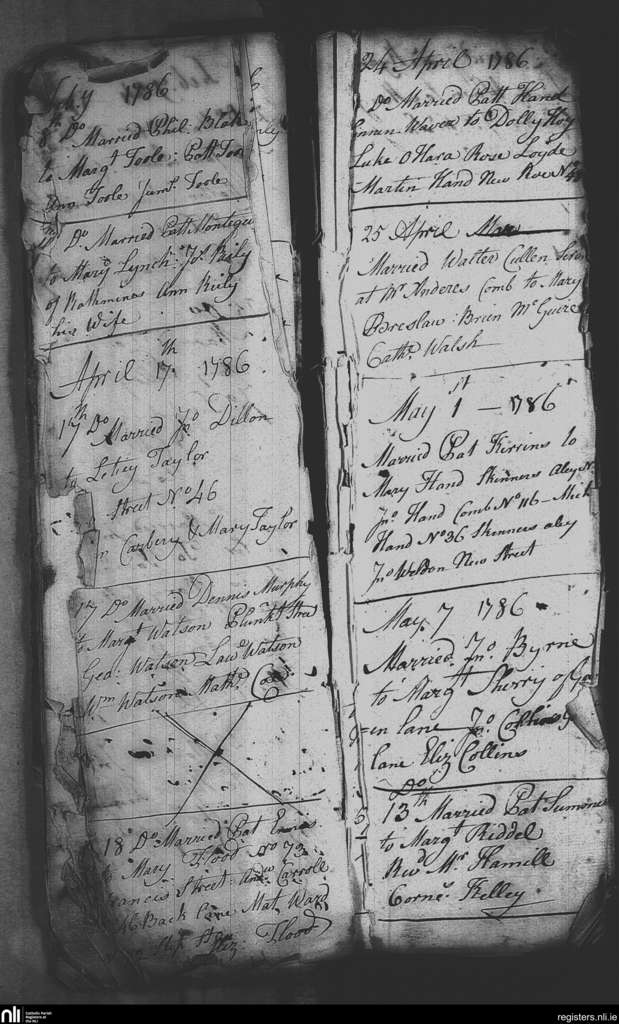 Feb.y 1786
8th Do Married Phil: Blak
to Margt Toole: Patt Tool
Ann Toole Junr. Toole
Do Married Patt Montigu
to Mary Lynch: Js. Rily
of Rathmines Ann Rily
his Wife
April 17th 1786
17th Do Married Jno Dillon
to Letcy Taylor
Street No 46
Carbery & Mary Taylor
17 Do Married Dennis Murphy
to Margt Watson Plunkt Street
Geo: Watson Lawe Watson
Wm Watson Mathw
18 Do Married Pat
to Mary Flood No 73
Francis Street Andw Carroll
46 Back Lane Mat Ward
Eliz: Flood
24 April 1786
Do Married Patt Hand
to Dolly Hoy
Luke OHara Rose Loyde
Martin Hand New Row No
25 April
Married Walter Cullen
at Mr Anderes Comb to Mary
Breslaw: Brien McGuire
Cathe. Walsh
May 1st - 1786
Married Pat Kirvins to
Mary Hand Skinners Aley No
Jno Hand Comb No 116 - Mick
Hand No 36 Skinners aley
Jno Weldon New Street
May 7 1786
Married Jno Byrne
to Margtt Sherry of
en lane Jno Collins
lane Eliz Collins
Do
13th Married Pat Summer
to Margt Riddel
Revd Mr Hamill
Corns. Kelley
nli
Catholic Parish
Registers at
the NLI
registers.nli.ie